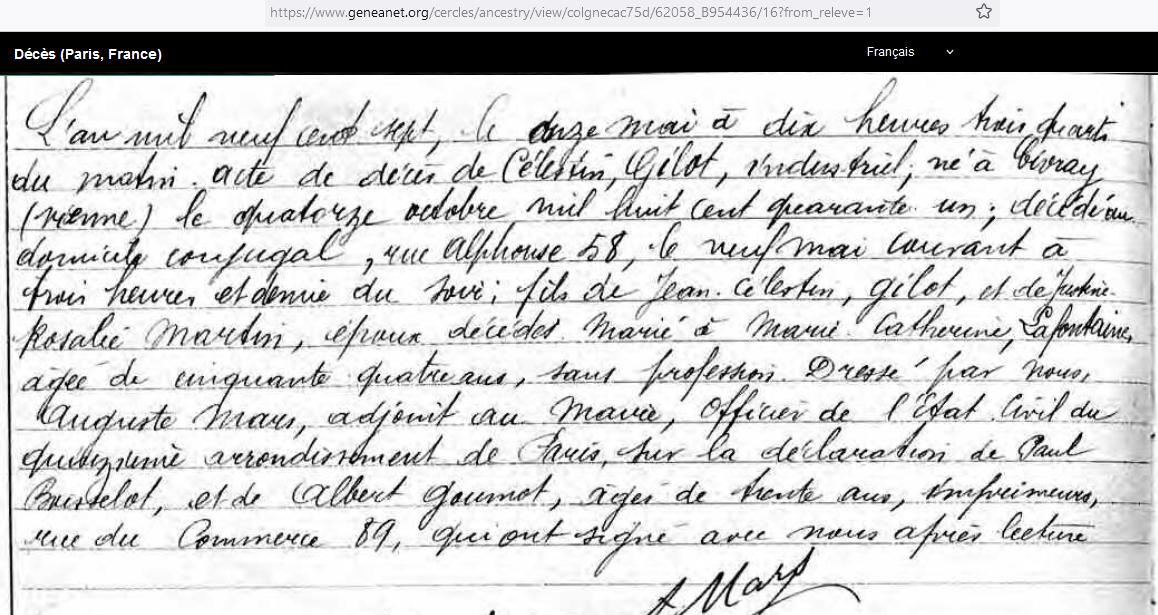 https://www.geneanet.org/cercles/ancestry/view/colgnecac75d/62058_B954436/16?from_releve=1
Décès (Paris, France)
Français
L'an mil neuf cent sept, le onze mai à dix heures trois quarts
du matin. acte de décès de Célestin, Gilot, industriel; né à Civray
(vienne) le quatorze octobre mil huit cent quarante un; décédé au
domicile conjugal, rue Alphonse 58, le neuf mai courant à
trois heures et demie du soir; fils de Jean-Célestin, Gilot, et de Justine-
Rosalie Martin, époux décédés. Marié à Marie Catherine, Lafontaine,
âgée de cinquante quatre ans, sans profession. Dressé par nous,
Auguste Mars, adjoint au Maire, Officier de l'Etat Civil du
quinzième arrondissement de Paris, sur la déclaration de Paul
Boisselot, et de Albert Goumot, âgés de trente ans, imprimeurs,
rue du Commerce 89, qui ont signé avec nous après lecture
A Mars